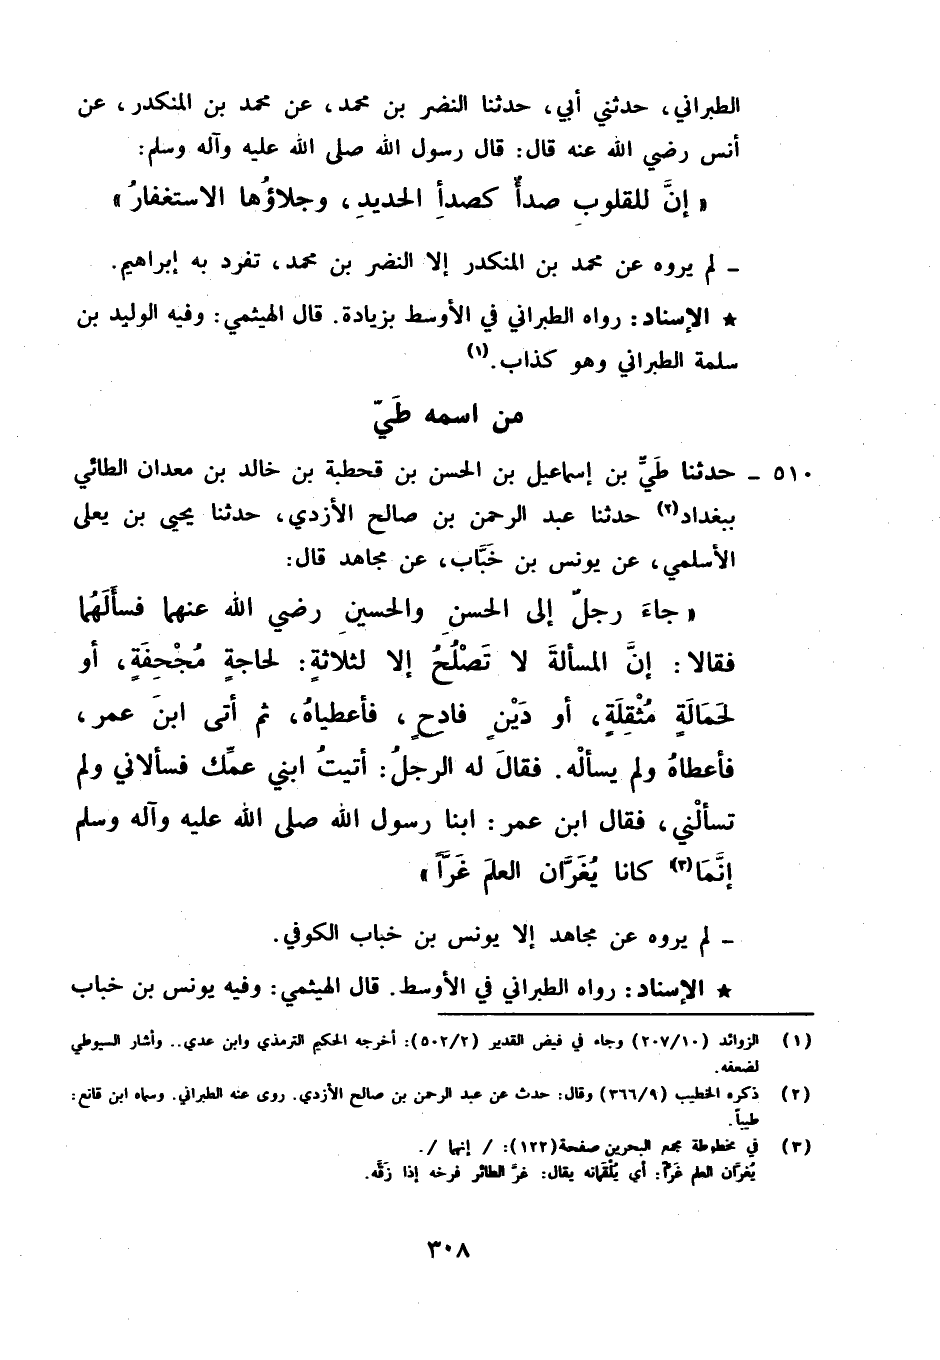 الطبراني، حدثني أبي، حدثنا النضر بن محمد، عن محمد بن المنكدر، عن
أنس رضي الله عنه قال: قال رسول الله صلى الله عليه وآله وسلم:
« إنَّ للقلوبِ صدأً كصدأِ الحديدِ، وجلاؤُها الاستغفارُ »
ـ لم يروه عن محمد بن المنكدر إلا النضر بن محمد، تفرد به إبراهيم.
★ الإسناد: رواه الطبراني في الأوسط بزيادة. قال الهيثمي: وفيه الوليد بن
سلمة الطبراني وهو كذاب.(١)
من اسمه طَيّ
٥١٠ ـ حدثنا طَيٌّ بن إسماعيل بن الحسن بن قحطبة بن خالد بن معدان الطائي
ببغداد(٢) حدثنا عبد الرحمن بن صالح الأزدي، حدثنا يحيى بن يعلى
الأسلمي، عن يونس بن خَبَّاب، عن مجاهد قال:
« جاءَ رجلٌ إلى الحسنِ والحسينِ رضي الله عنهما فسأَلَهُما
فقالا: إنَّ المسألةَ لا تَصْلُحُ إلا لثلاثةٍ: لحاجةٍ مُجْحِفَةٍ، أو
لحَمَالَةٍ مُثْقِلَةٍ، أو دَيْنٍ فادحٍ، فأعطياهُ، ثم أتى ابنَ عمر،
فأعطاهُ ولم يسألْه. فقالَ له الرجلُ: أتيتُ ابني عمِّك فسألاني ولم
تسألْني، فقال ابن عمر: ابنا رسول الله صلى الله عليه وآله وسلم
إنَّمَا(٣) كانا يُغَرَّان العلمَ غَرَّاً »
ـ لم يروه عن مجاهد إلا يونس بن خباب الكوفي.
★ الإسناد: رواه الطبراني في الأوسط. قال الهيثمي: وفيه يونس بن خباب
(١) الزوائد (٢٠٧/١٠) وجاء في فيض القدير (٥٠٢/٢): أخرجه الحكيم الترمذي وابن عدي.. وأشار السيوطي
لضعفه.
(٢) ذكره الخطيب (٣٦٦/٩) وقال: حدث عن عبد الرحمن بن صالح الأزدي. روى عنه الطبراني. وسماه ابن قانع:
طيباً.
(٣) في مخطوطة مجمع البحرين صفحة(١٢٢): / إنهما /.
يُغرَّان العلم غَرّاً: أي يُلْقَمَانه يقال: غرَّ الطائر فرخه إذا زَقَّه.
٣٠٨